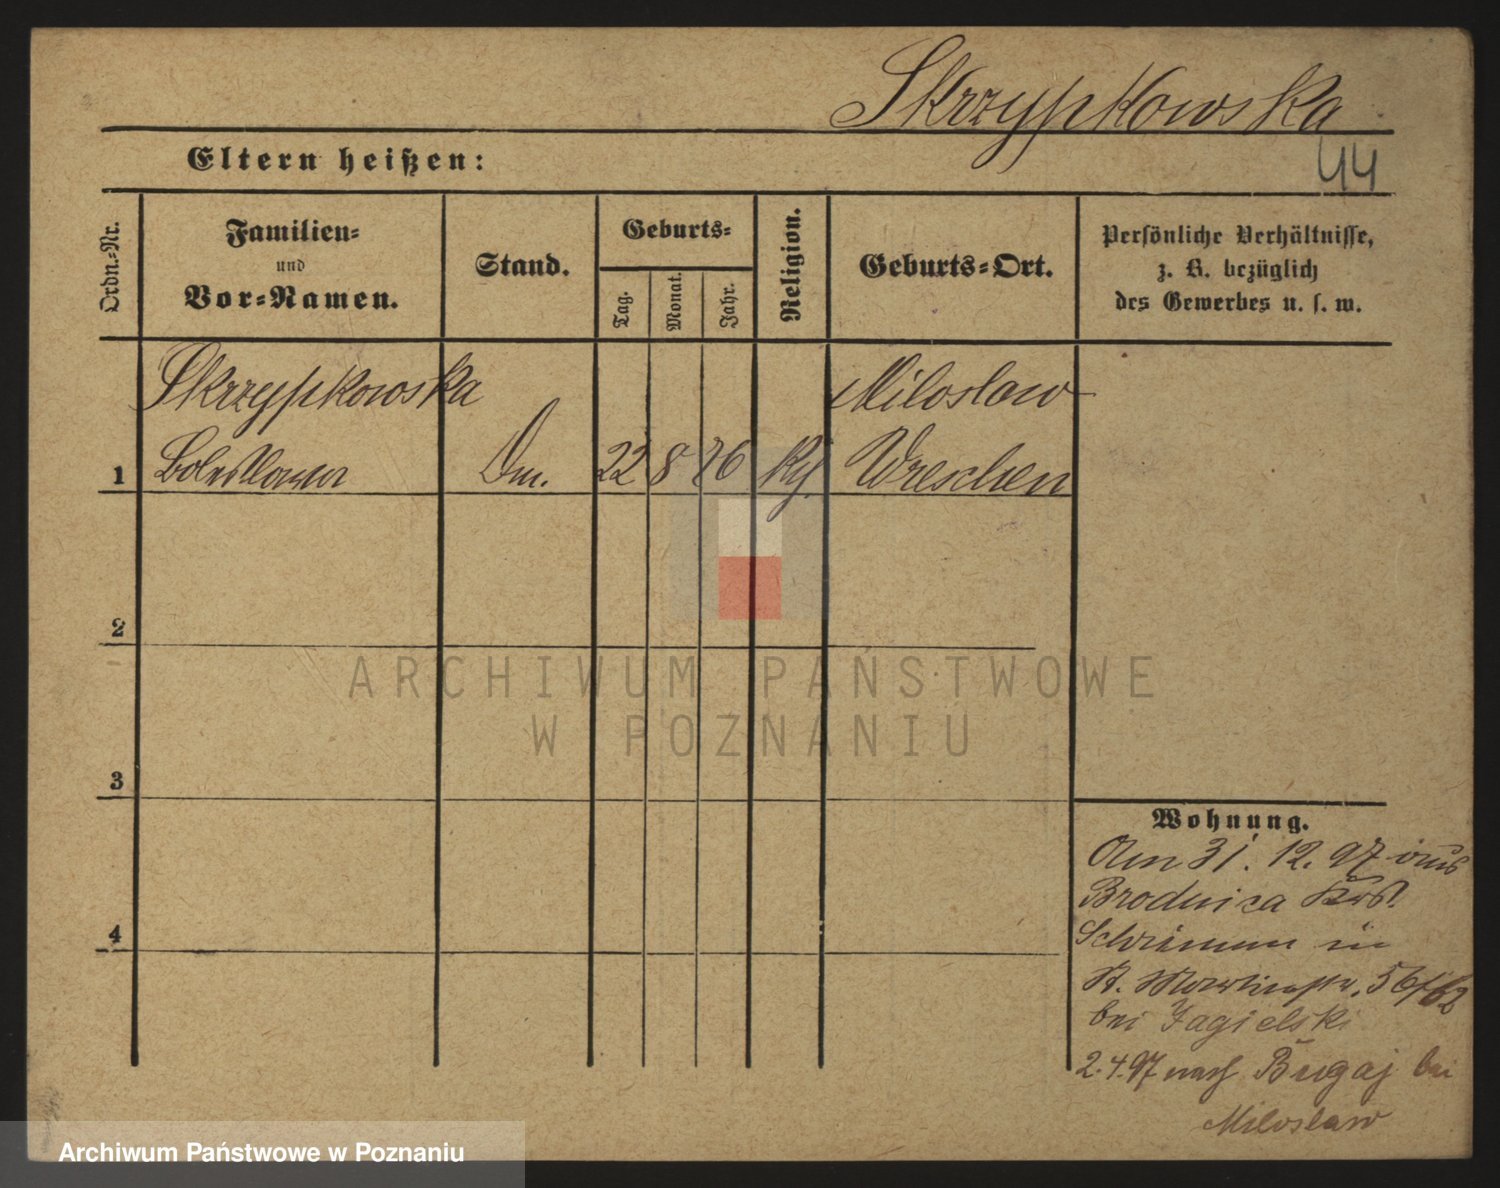 Skrzypkowska
Eltern heißen:
44
Ordn.-Nr.
Familien-
und
Vor-Namen.
Stand.
Geburts-
Tag.
Monat.
Jahr.
Religion.
Geburts-Ort.
Persönliche Verhältnisse,
z. B. bezüglich
des Gewerbes u. s. w.
Skrzypkowska
Miloslaw
1 Boleslawa Dm. 22 8 76 Wreschen
2
ARCHIWUM PAŃSTWOWE
W POZNANIU
3
Wohnung.
Am 31. 12. 97 aus
Brodnica Krs.
Schrimm in
St. Martinstr. 56
bei Jagielski
2.4.97 nach Bugaj bei
Miloslaw
4
Archiwum Państwowe w Poznaniu